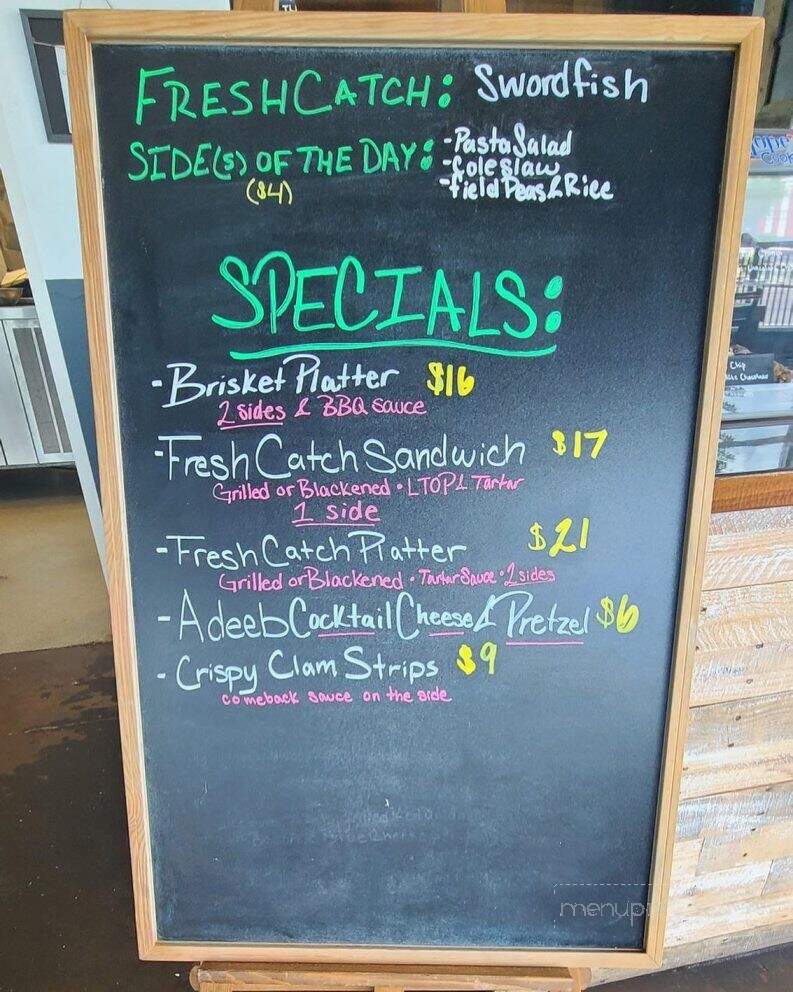 FRESH CATCH: Swordfish
SIDE(S) OF THE DAY: -Pasta Salad
($4) -Coleslaw
-Field Peas & Rice
SPECIALS:
-Brisket Platter $16
2 sides & BBQ sauce
-Fresh Catch Sandwich $17
Grilled or Blackened • LTOP1 Tartar
1 side
-Fresh Catch Platter $21
Grilled or Blackened • Tartar Sauce • 2 sides
-Adeeb Cocktail Cheese & Pretzel $6
-Crispy Clam Strips $9
comeback sauce on the side
Chip
menup